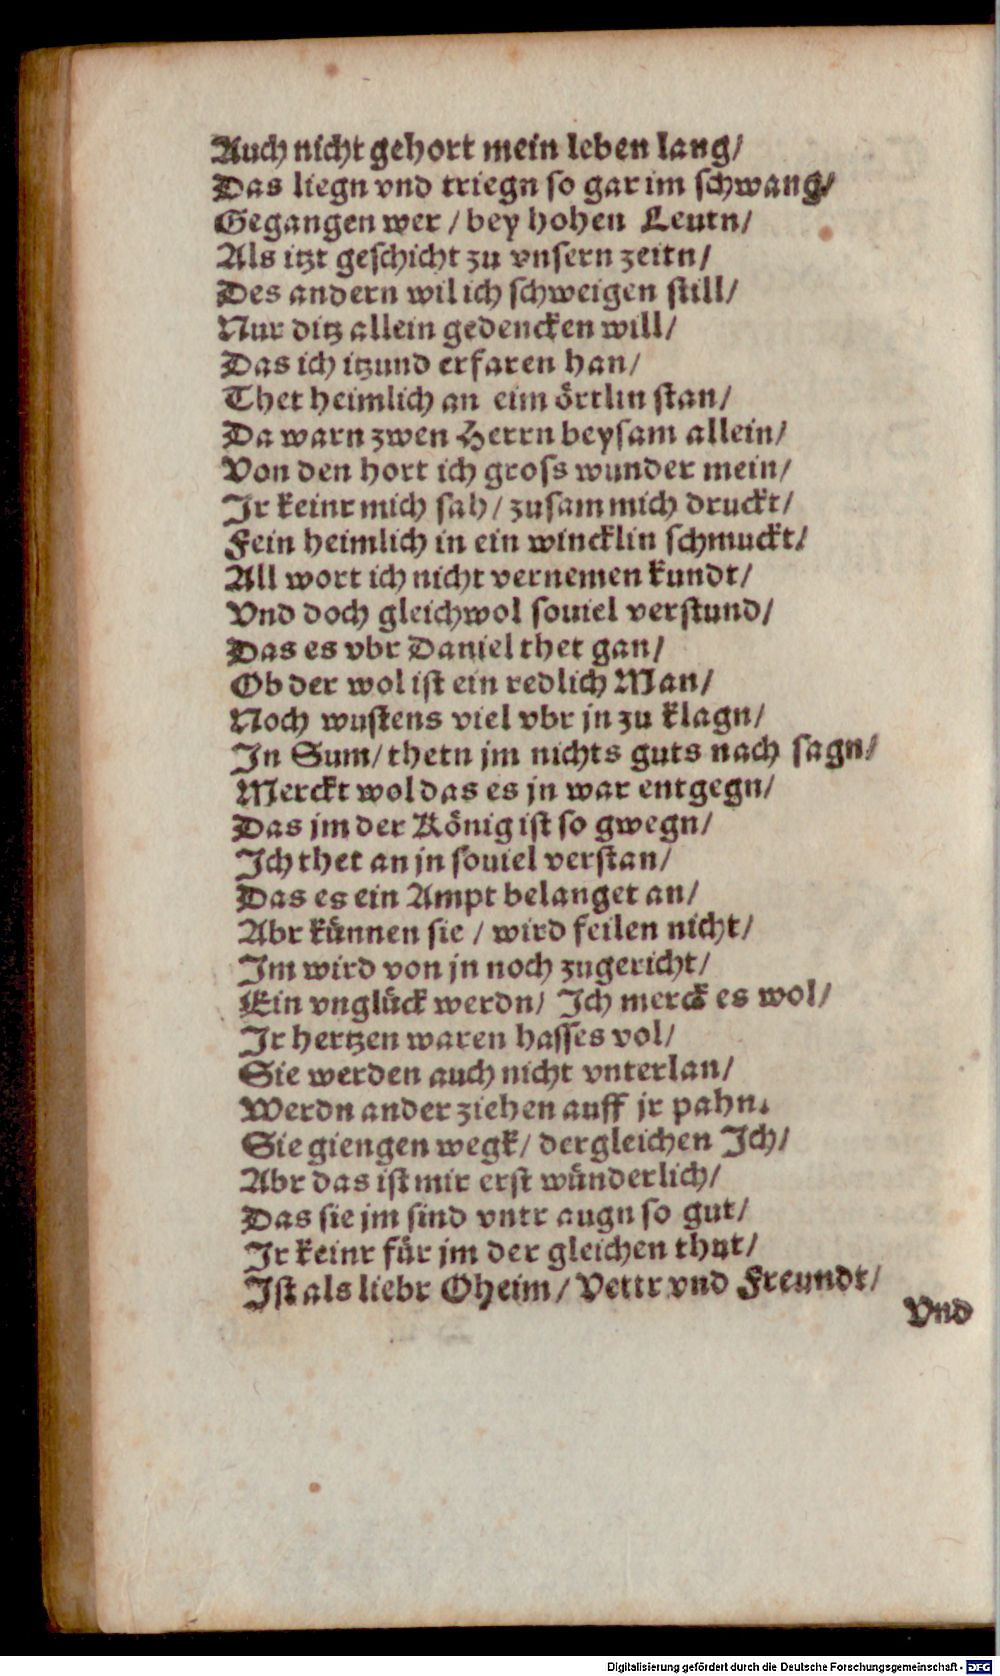 Auch nicht gehort mein leben lang/
Das liegn vnd triegn so gar im schwang/
Gegangen wer / bey hohen Leutn/
Als itzt geschicht zu vnsern zeitn/
Des andern wil ich schweigen still/
Nur ditz allein gedencken will/
Das ich itzund erfaren han/
Thet heimlich an eim örtlin stan/
Da warn zwen Herrn beysam allein/
Von den hort ich gross wunder mein/
Ir keinr mich sah / zusam mich druckt/
Fein heimlich in ein wincklin schmuckt/
All wort ich nicht vernemen kundt/
Vnd doch gleichwol souiel verstund/
Das es vbr Daniel thet gan/
Ob der wol ist ein redlich Man/
Noch wustens viel vbr jn zu klagn/
In Sum/ thetn jm nichts guts nach sagn/
Merckt wol das es jn war entgegn/
Das jm der König ist so gwegn/
Ich thet an jn souiel verstan/
Das es ein Ampt belanget an/
Abr künnen sie / wird feilen nicht/
Im wird von jn noch zugericht/
Ein vnglück werdn/ Ich merck es wol/
Ir hertzen waren hasses vol/
Sie werden auch nicht vnterlan/
Werdn ander ziehen auff jr pahn.
Sie giengen wegk/ dergleichen Ich/
Abr das ist mir erst wünderlich/
Das sie jm sind vntr augn so gut/
Ir keinr für jm der gleichen thut/
Ist als liebr Oheim/ Vettr vnd Freundt/
Vnd
Digitalisierung gefördert durch die Deutsche Forschungsgemeinschaft - DFG